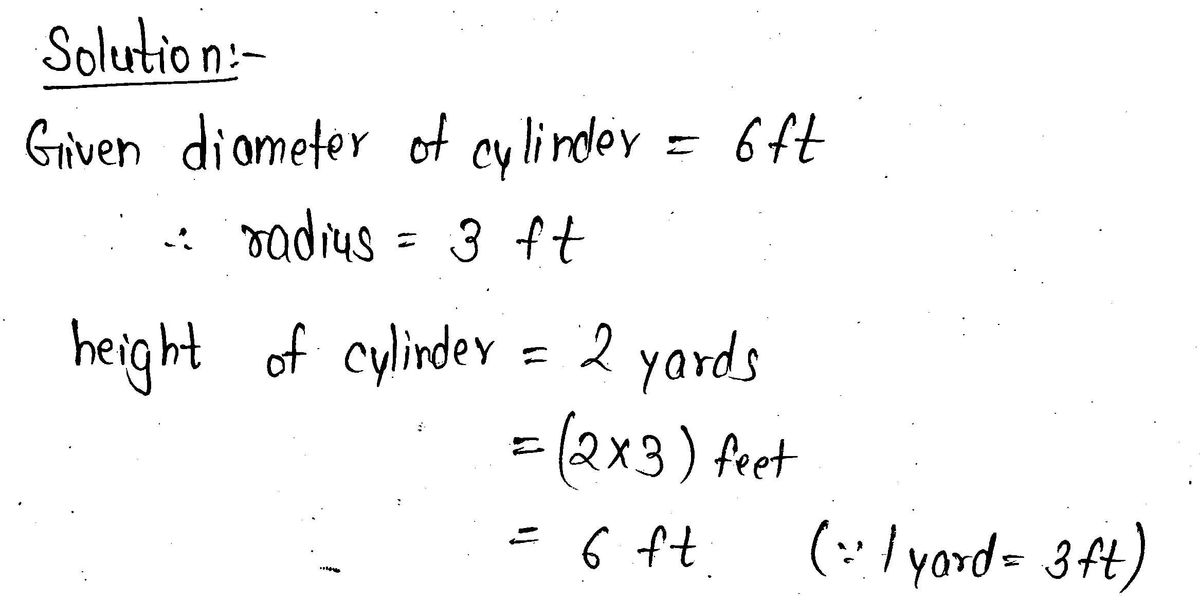 Solution:-
Given diameter of cylinder = 6ft
∴ radius = 3 ft
height of cylinder = 2 yards
= (2×3) feet
= 6 ft. (∵ 1 yard = 3ft)